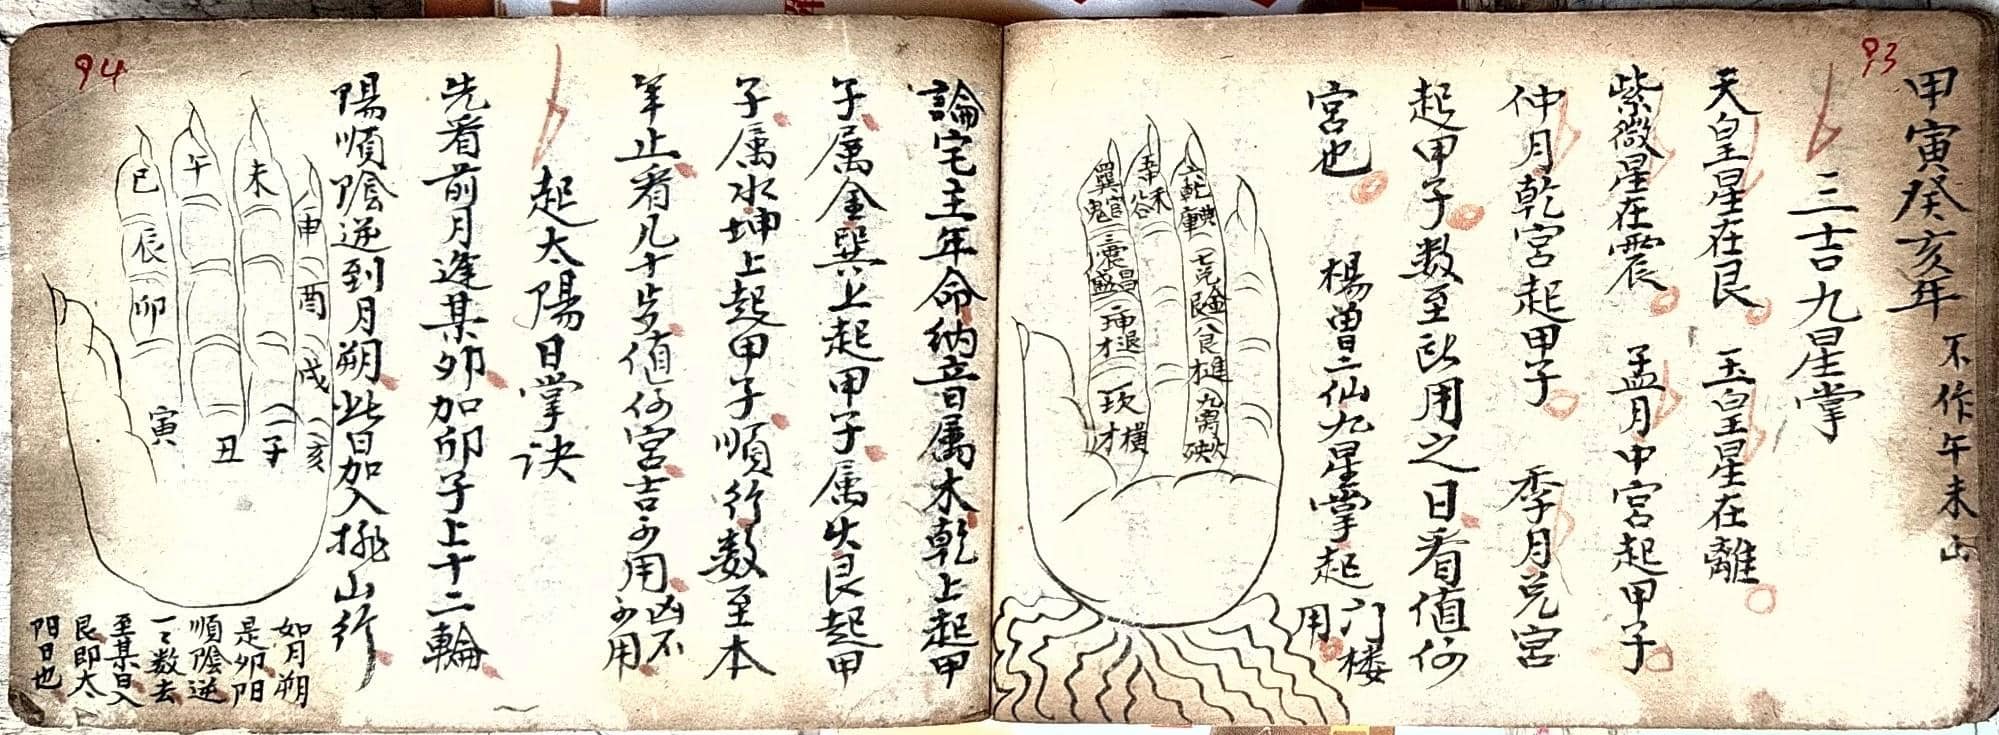 93
甲寅癸亥年 不作午未山
三吉九星掌
天皇星在艮 玉皇星在離
紫微星在震 孟月中宮起甲子
仲月乾宮起甲子 季月兌宮
起甲子数至所用之日看值何
宮也 楊曽二仙九星掌起門楼用
六乾
七兌
八艮
九离
論宅主年命纳音属木乾上起甲
子属金巽上起甲子属火艮起甲
子属水坤上起甲子順行数至本
年止看几十歩值何宮吉可用凶不可用
起太陽日掌决
先看前月逢某卯加卯子上十二輪
陽順陰逆到月朔此日加入挑山行
94
巳
午
未
申
辰
酉
卯
戌
寅
丑
子
亥
如月朔
是卯阳
順陰逆
一々数去
至某日又
艮即太
阳日也